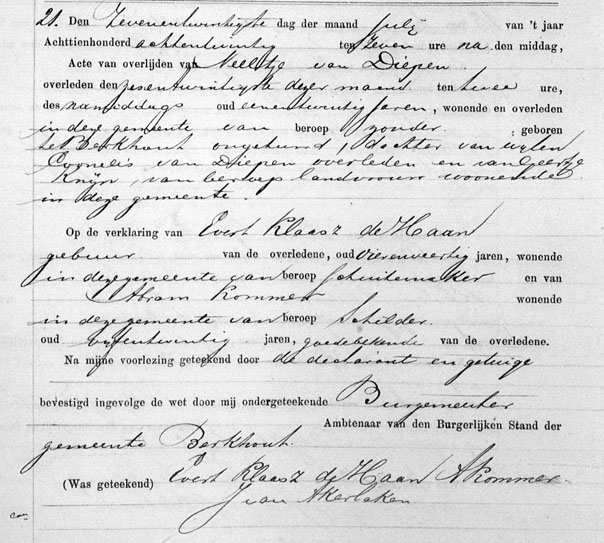 21. Den Zevenentwintigste dag der maand July van 't jaar
Achttienhonderd achtentwintig ten zeven ure na den middag,
Acte van overlijden van Neeltje van Diepen
overleden den zesentwintigste dezer maand ten twee ure,
des namiddags oud eenentwintig Jaren, wonende en overleden
in deze gemeente van beroep zonder geboren
te Berkhout ongehuwd, dochter van wijlen
Cornelis van Diepen overleden en van Geertje
Knijn, van beroep landvrouw woonende
in deze gemeente.
Op de verklaring van Evert Klaasz de Haan
gebuur van de overledene, oud vierenveertig jaren, wonende
in deze gemeente van beroep Schuitemaker en van
Abram Kommer wonende
in deze gemeente van beroep Schilder.
oud vijfentwintig jaren, goede bekende van de overledene.
Na mijne voorlezing geteekend door de declarant en getuige
bevestigd ingevolge de wet door mij ondergeteekende Burgemeester
Ambtenaar van den Burgerlijken Stand der
gemeente Berkhout.
(Was geteekend) Evert Klaasz de Haan A Kommer.
Jean Akerlaken